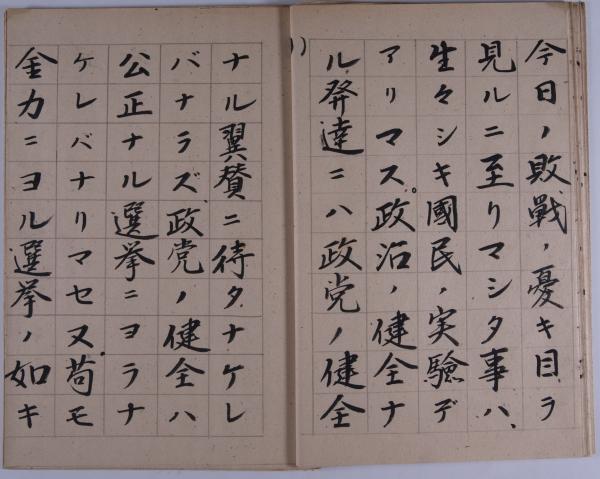 今日ノ敗戰ノ憂キ目ヲ
見ルニ至リマシタ事ハ、
生々シキ國民ノ実驗デ
アリマス。政治ノ健全ナ
ル発達ニハ政党ノ健全
ナル翼賛ニ待タナケレ
バナラズ政党ノ健全ハ
公正ナル選挙ニヨラナ
ケレバナリマセヌ苟モ
金力ニヨル選挙ノ如キ